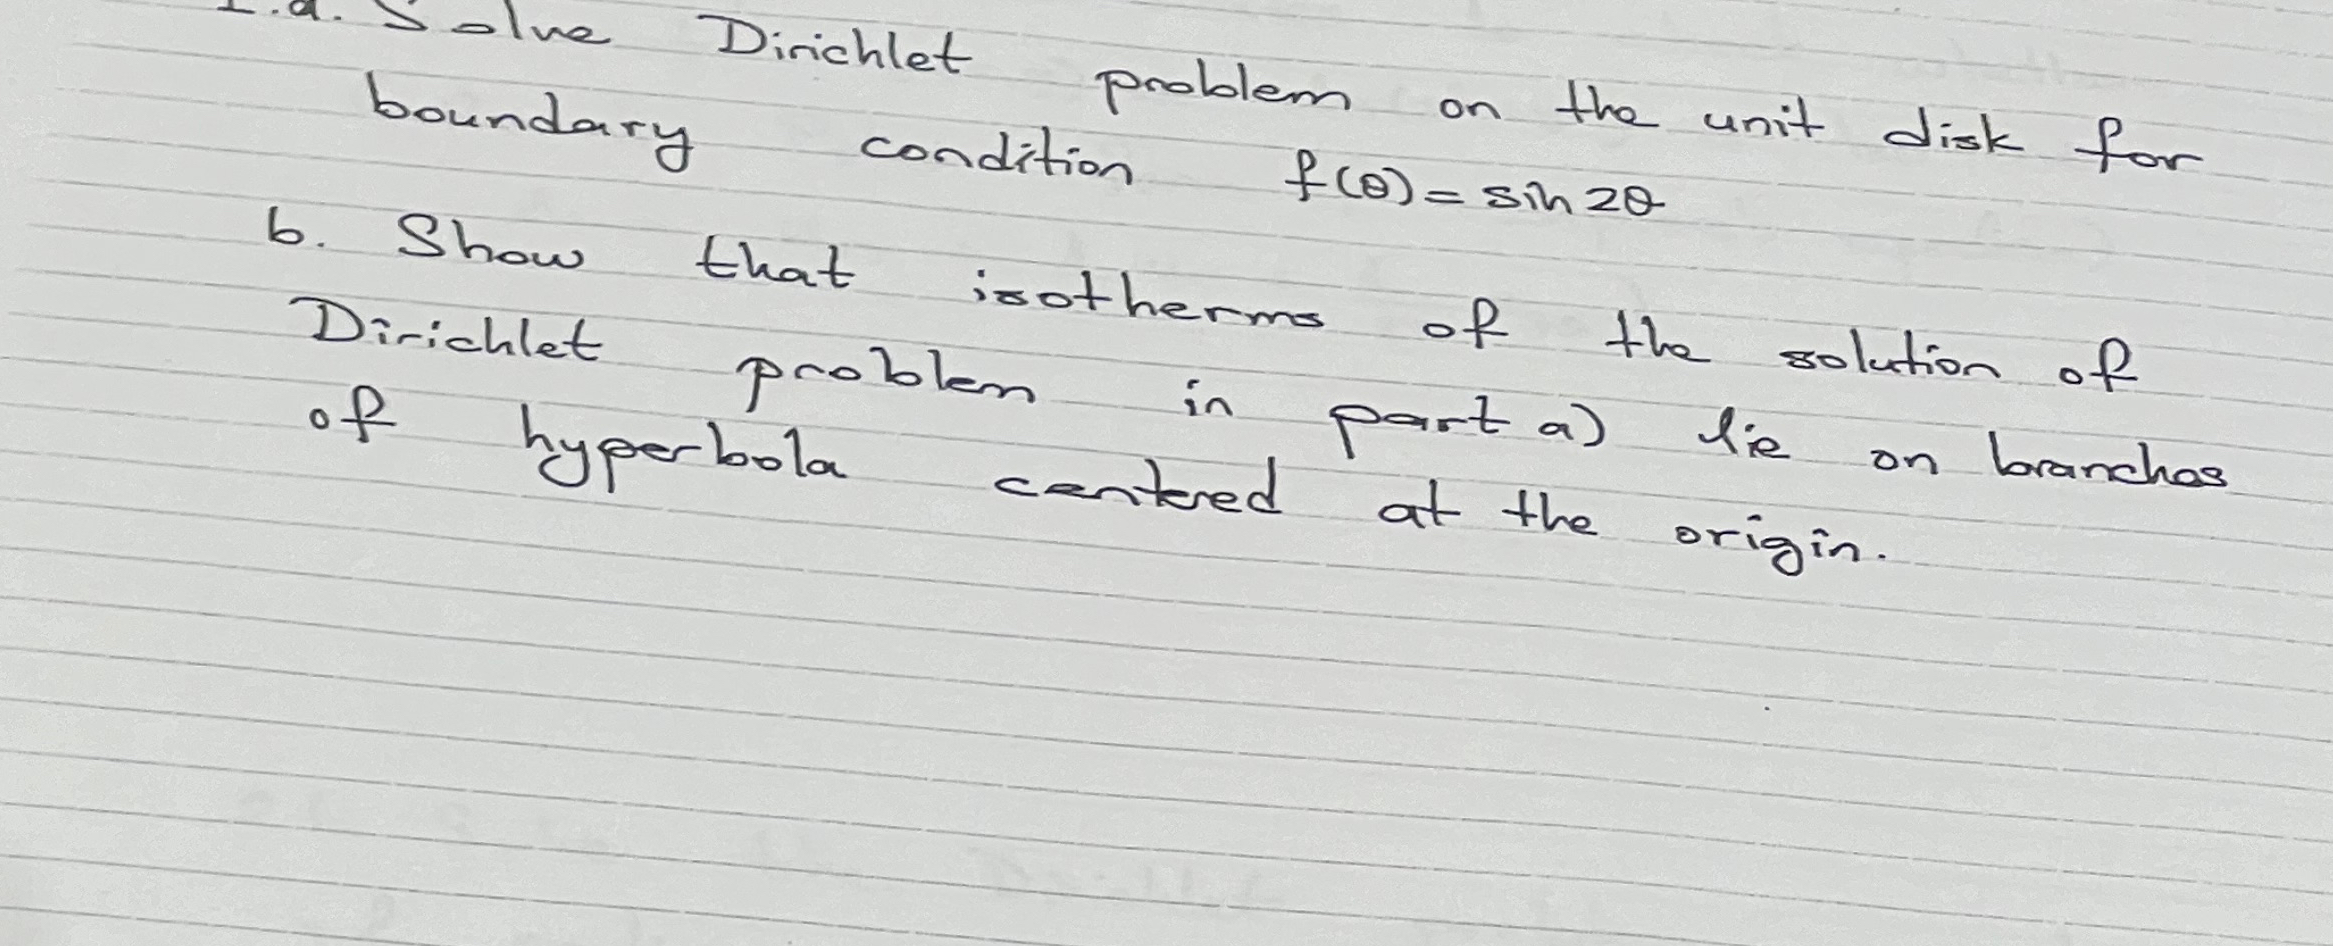 1.a. Solve Dirichlet problem on the unit disk for
boundary condition f(θ) = sin 2θ
b. Show that isotherms of the solution of
Dirichlet problem in part a) lie on branches
of hyperbola centered at the origin.